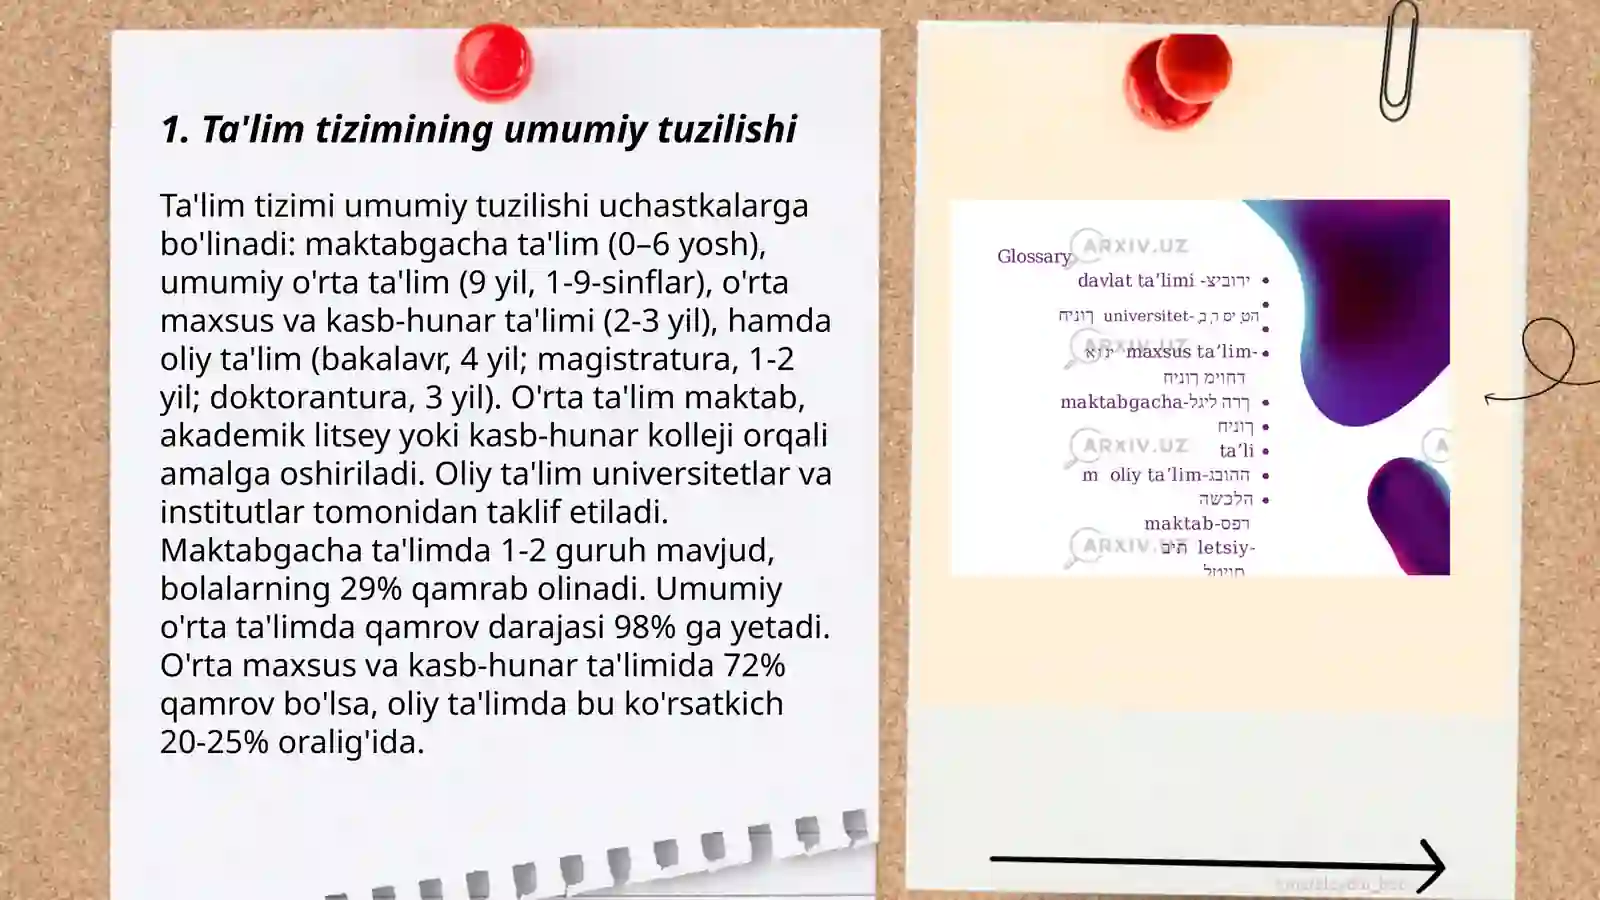 1. Ta'lim tizimining umumiy tuzilishi
Ta'lim tizimi umumiy tuzilishi uchastkalarga
bo'linadi: maktabgacha ta'lim (0–6 yosh),
umumiy o'rta ta'lim (9 yil, 1-9-sinflar), o'rta
maxsus va kasb-hunar ta'limi (2-3 yil), hamda
oliy ta'lim (bakalavr, 4 yil; magistratura, 1-2
yil; doktorantura, 3 yil). O'rta ta'lim maktab,
akademik litsey yoki kasb-hunar kolleji orqali
amalga oshiriladi. Oliy ta'lim universitetlar va
institutlar tomonidan taklif etiladi.
Maktabgacha ta'limda 1-2 guruh mavjud,
bolalarning 29% qamrab olinadi. Umumiy
o'rta ta'limda qamrov darajasi 98% ga yetadi.
O'rta maxsus va kasb-hunar ta'limida 72%
qamrov bo'lsa, oliy ta'limda bu ko'rsatkich
20-25% oralig'ida.
ARXIV.UZ
Glossary
davlat ta’limi -
universitet-
ARXIV.UZ
maxsus ta’lim-
maktabgacha-
ARXIV.UZ
ta’li
m oliy ta’lim-
maktab-
ARXIV.UZ
letsiy-